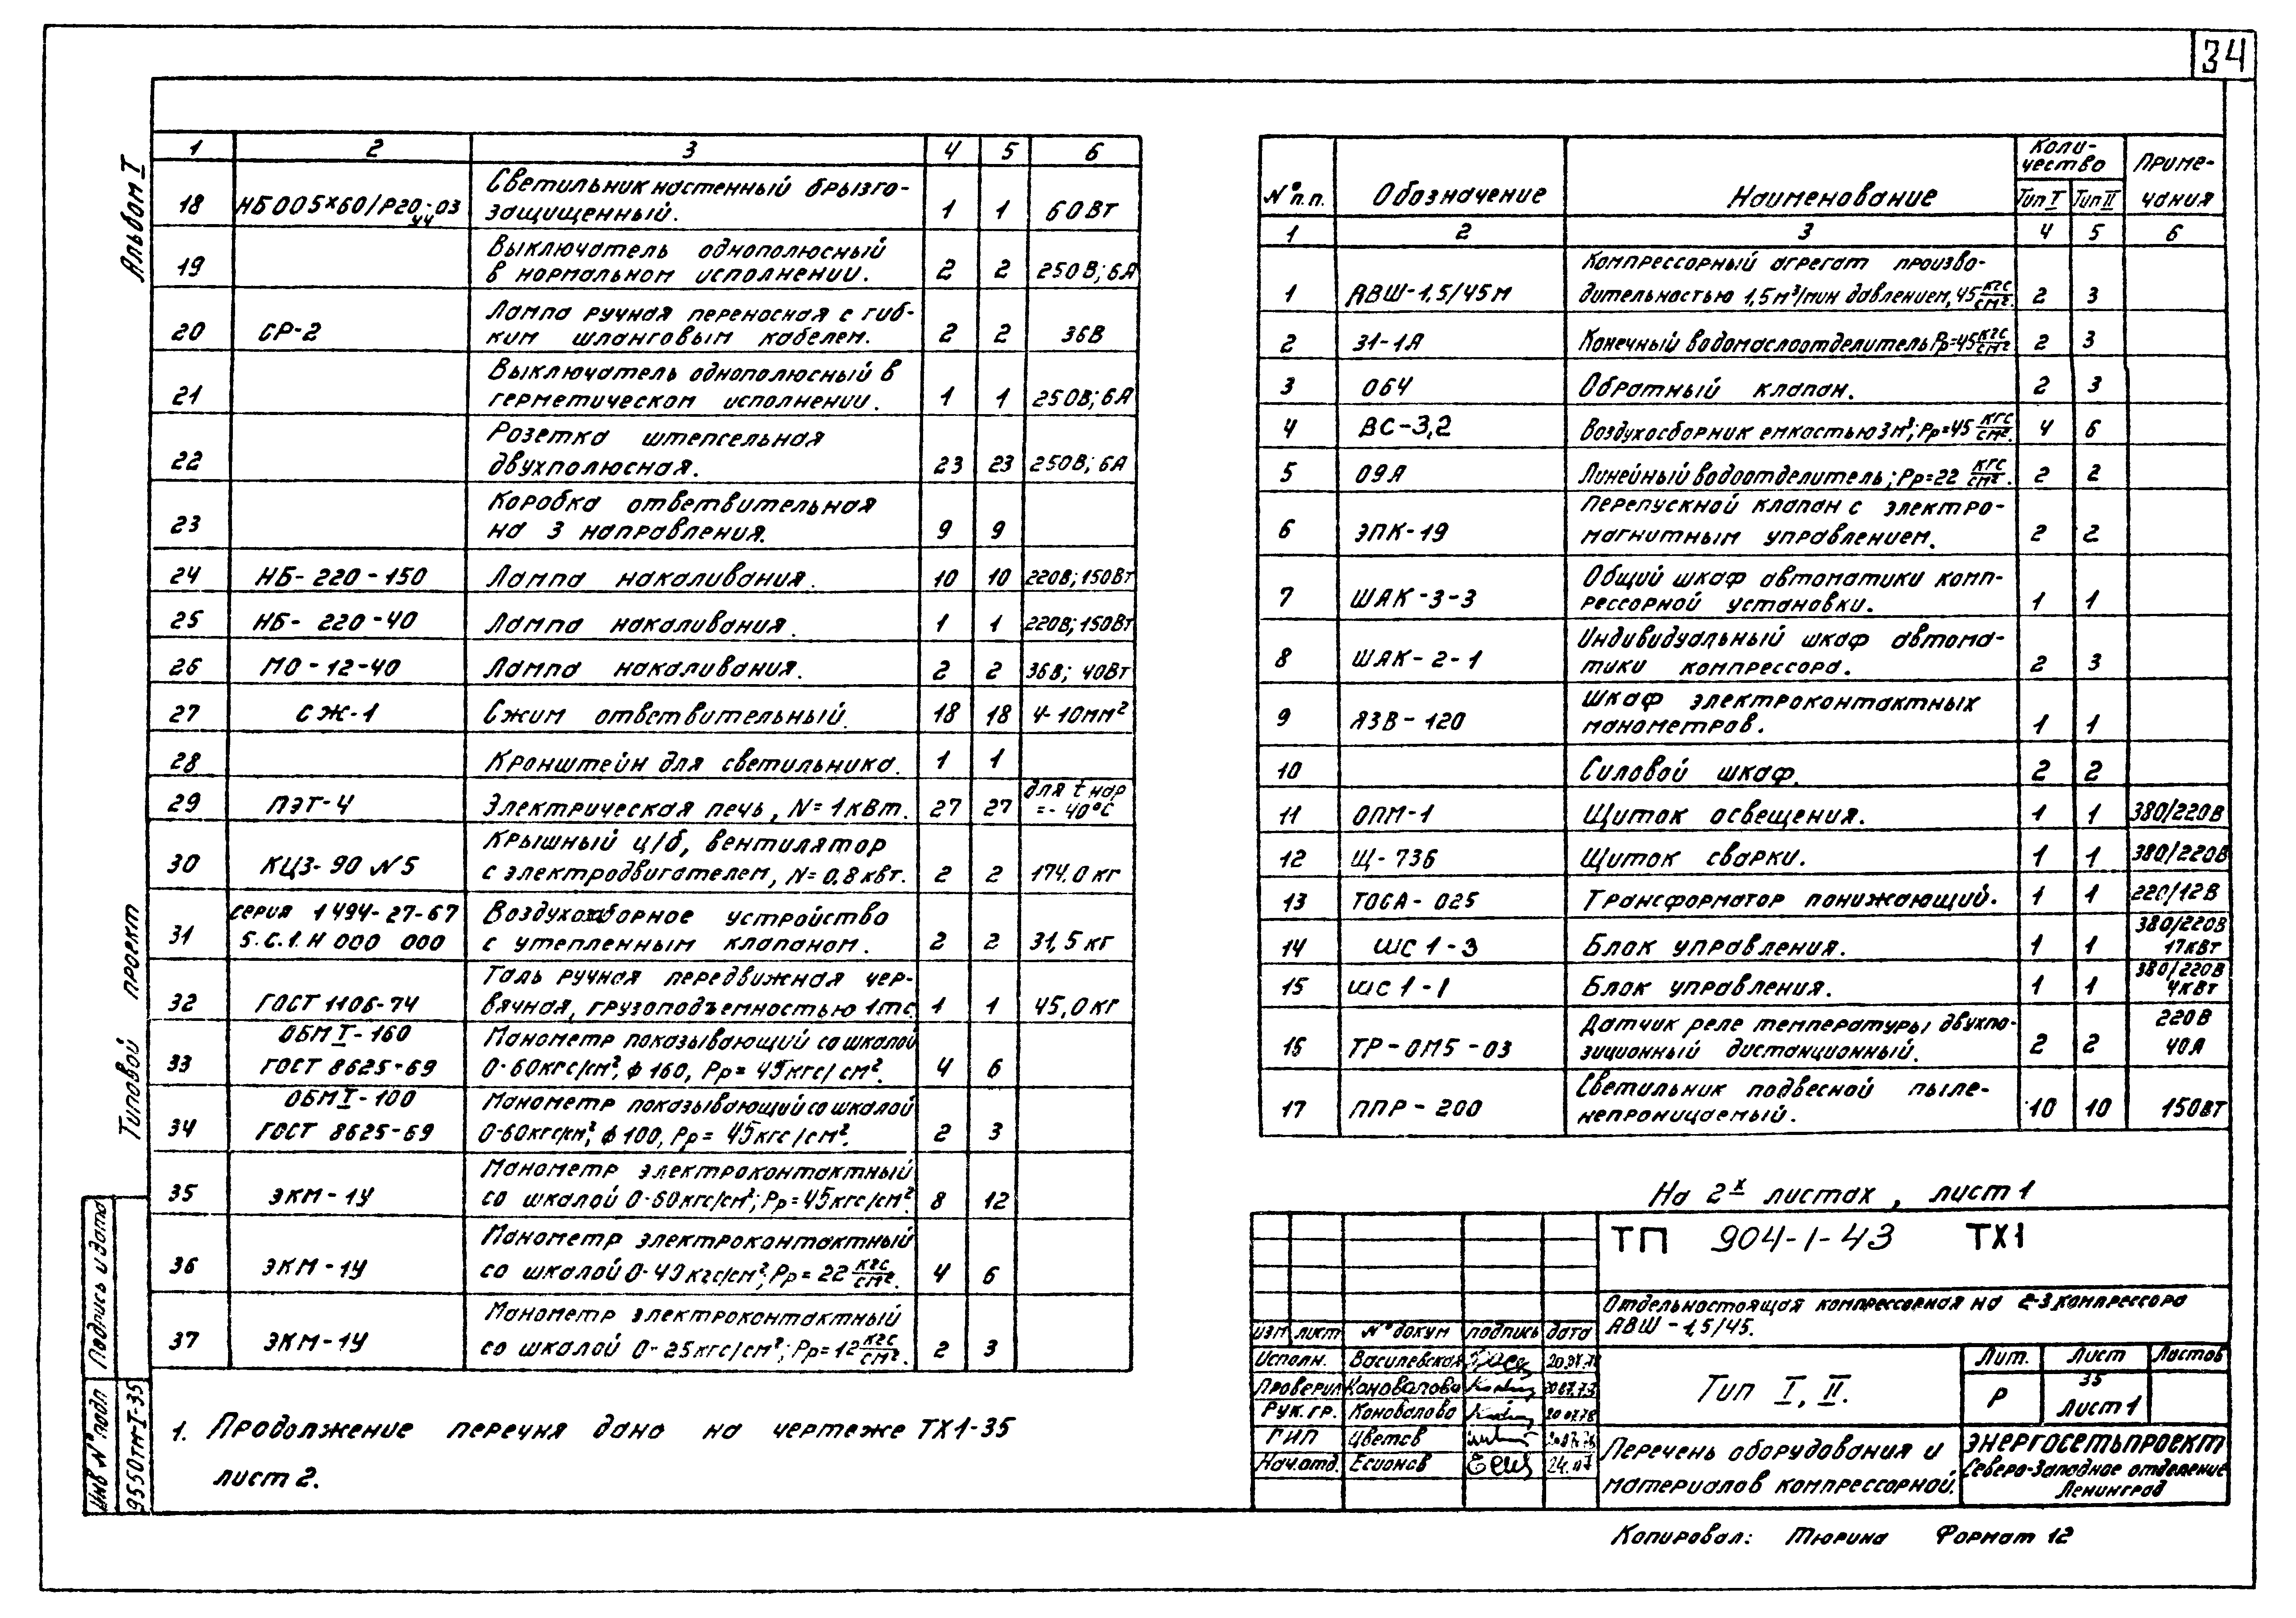 34
Альбом I
Типовой проект
1 2 3 4 5 6
18 НБ005х60/Р20-03 УЧ Светильник настенный брызго-
защищенный. 1 1 60Вт
19 Выключатель однополюсный
в нормальном исполнении. 2 2 250В; 6А
20 СР-2 Лампа ручная переносная с гиб-
ким шланговым кабелем. 2 2 36В
21 Выключатель однополюсный в
герметическом исполнении. 1 1 250В; 6А
22 Розетка штепсельная
двухполюсная. 23 23 250В; 6А
23 Коробка ответвительная
на 3 направления. 9 9
24 НБ-220-150 Лампа накаливания. 10 10 220В; 150Вт
25 НБ-220-40 Лампа накаливания. 1 1 220В; 150Вт
26 МО-12-40 Лампа накаливания. 2 2 36В; 40Вт
27 СЖ-1 Сжим ответвительный. 18 18 4-10мм²
28 Кронштейн для светильника. 1 1
29 ПЭТ-4 Электрическая печь, N=1кВт. 27 27 для t нар
=-40°С
30 КЦЗ-90 №5 Крышный ц/б, вентилятор
с электродвигателем, N=0,8квт. 2 2 174,0 кг
31 серия 1494-27-67 Воздухозаборное устройство
5.С.1.Н 000 000 с утепленным клапаном. 2 2 31,5 кг
32 ГОСТ 1106-74 Таль ручная передвижная чер-
вячная, грузоподъемностью 1тс. 1 1 45,0 кг
33 ОБМ I-160 Манометр показывающий со шкалой
ГОСТ 8625-69 0-60кгс/см², ф 160, Рр=45кгс/см². 4 6
34 ОБМ I-100 Манометр показывающий со шкалой
ГОСТ 8625-69 0-60кгс/см², ф 100, Рр= 45кгс/см². 2 3
35 ЭКМ-1У Манометр электроконтактный
со шкалой 0-60кгс/см²; Рр=45кгс/см² 8 12
36 ЭКМ-1У Манометр электроконтактный
со шкалой 0-40кгс/см²; Рр=22 кгс/см². 4 6
37 ЭКМ-1У Манометр электроконтактный
со шкалой 0-25кгс/см²; Рр=12 кгс/см². 2 3
1. Продолжение перечня дано на чертеже ТХ1-35
лист 2.
№ п.п. Обозначение Наименование Коли-
чество Приме-
чания
Тип I Тип II
1 2 3 4 5 6
1 АВШ-1,5/45м Компрессорный агрегат произво-
дительностью 1,5м³/мин давлением, 45 кгс/см². 2 3
2 31-1А Конечный водомаслоотделитель Рр=45 кгс/см² 2 3
3 064 Обратный клапан. 2 3
4 ВС-3,2 Воздухосборник емкостью 3м³; Рр=45 кгс/см². 4 6
5 09А Линейный водоотделитель; Рр=22 кгс/см². 2 2
6 ЭПК-19 Перепускной клапан с электро-
магнитным управлением. 2 2
7 ШАК-3-3 Общий шкаф автоматики комп-
рессорной установки. 1 1
8 ШАК-2-1 Индивидуальный шкаф автома-
тики компрессора. 2 3
9 ЯЗВ-120 Шкаф электроконтактных
манометров. 1 1
10 Силовой шкаф. 2 2
11 ОПМ-1 Щиток освещения. 1 1 380/220В
12 Щ-736 Щиток сварки. 1 1 380/220В
13 ТОСА-025 Трансформатор понижающий. 1 1 220/12В
14 ШС 1-3 Блок управления. 1 1 380/220В
17кВт
15 ШС 1-1 Блок управления. 1 1 380/220В
4кВт
16 ТР-ОМ5-03 Датчик реле температуры двухпо-
зиционный дистанционный. 2 2 220В
40А
17 ППР-200 Светильник подвесной пыле-
непроницаемый. 10 10 150Вт
На 2х листах, лист 1
ТП 904-1-43 ТХ1
Отдельностоящая компрессорная на 2-3 компрессора
АВШ-1,5/45.
изм лист № докум подпись дата
Исполн. Василевская
Проверил Коновалова
Рук.гр. Коновалова 20.07.78
ГИП Цветов
Нач.отд. Есионов 24.07
Тип I, II.
Лит. Лист Листов
Р 35
лист 1
Перечень оборудования и
материалов компрессорной.
ЭНЕРГОСЕТЬПРОЕКТ
Северо-Западное отделение
Ленинград
Копировал: Тюрина Формат 12
Подпись и дата
Инв № подл
9550тм-I-35